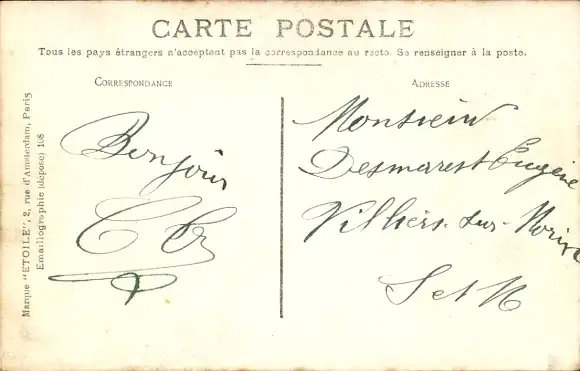 CARTE POSTALE
Tous les pays étrangers n'acceptent pas la correspondance au recto. Se renseigner à la poste.
CORRESPONDANCE
Bonjour
ADRESSE
Monsieur
Desmarest Eugène
Villiers-sur-Morin
S et M
Marque "ETOILE", 2, rue d'Amsterdam, Paris
Emaillographie (déposé) 108